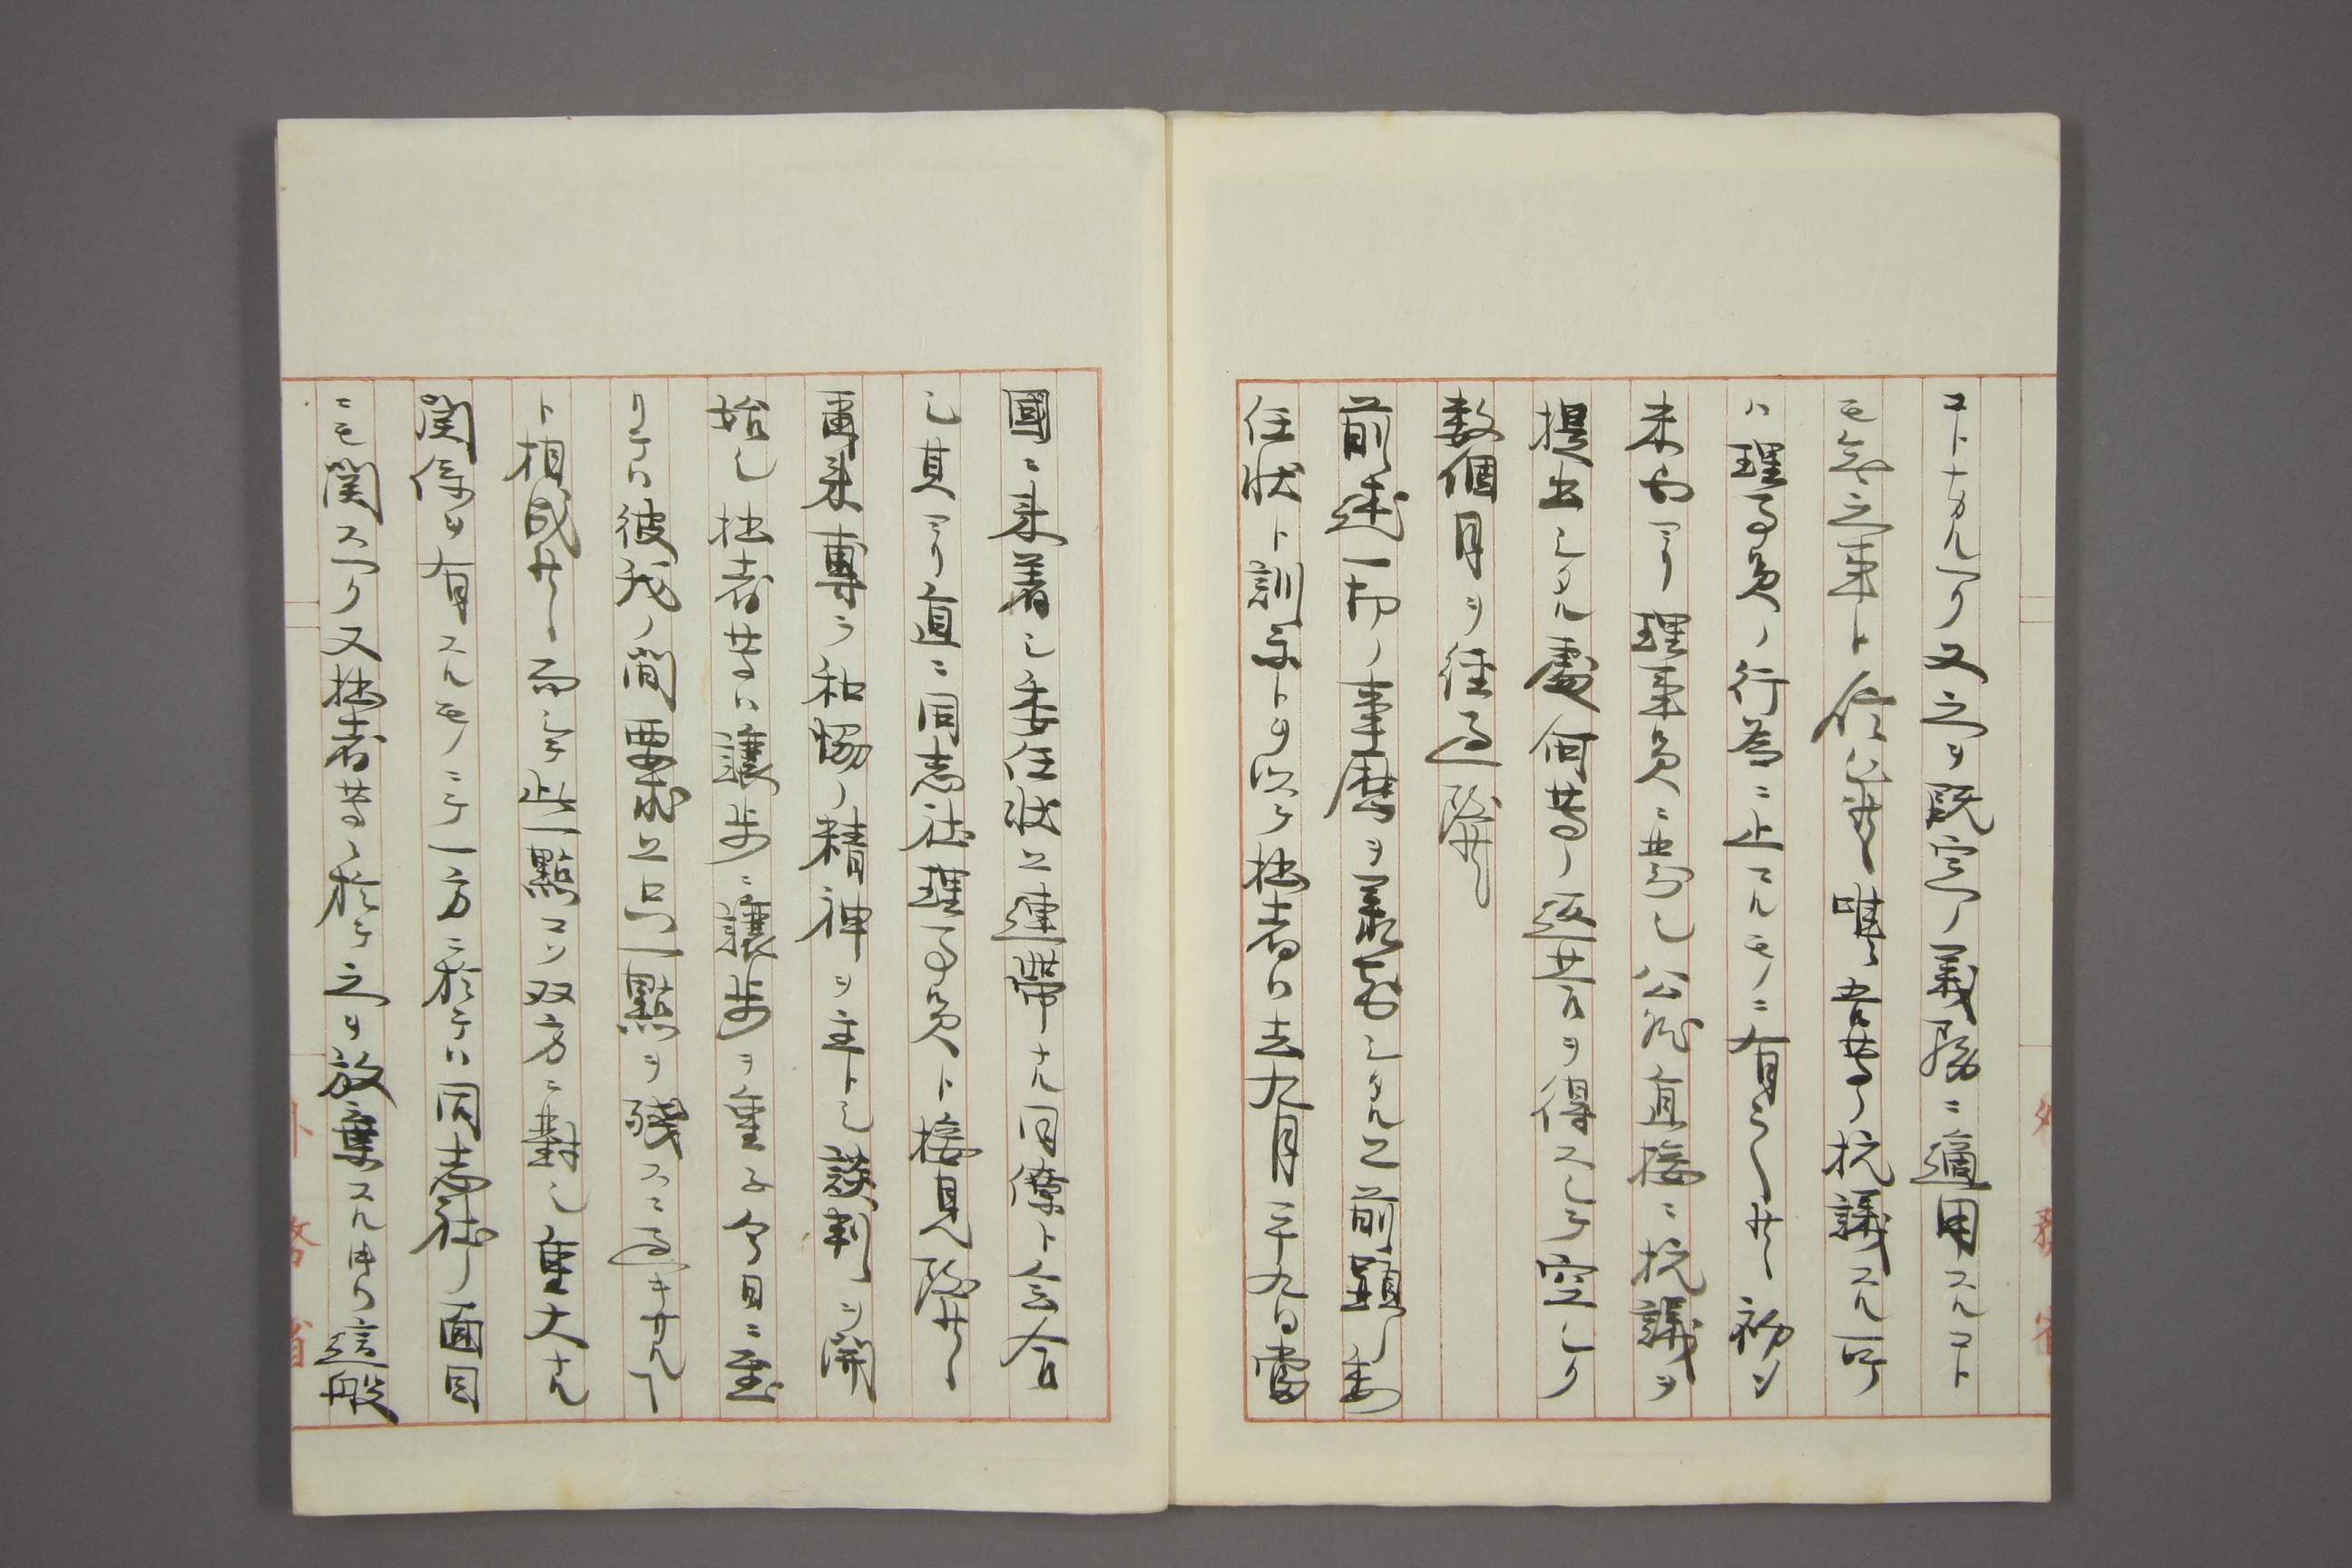 コトナカルヘク又之ヲ既定ノ義務ニ適用スルコト
モ無之事ト信シ候
ハ理事員ノ行為ニ止マルモノニ有之候
未タ曽テ理事員ニ対シ公然直接ニ抗議ヲ
提出シタル処何等ノ返答ヲ得スシテ空シク
数個月ヲ経過致候
前述一切ノ事歴ヲ具シタル上前顕ノ委
任状ト訓令トヲ以テ拙者ハ去九月二十九日当
國ニ来着シ委任状上連帯ナル同僚ト会合
シ其ヨリ直ニ同志社理事員ト接見致候
爾来専ラ和協ノ精神ヲ主トシ談判ヲ開
始シ拙者等ハ讓歩ニ讓歩ヲ重子今日ニ至
リテハ彼我ノ間要求上只一點ヲ残スニ過キサル事
ト相成候而シテ此一點コソ双方ニ對シ重大ナル
関係ヲ有スルモノニテ一方ニ於テハ同志社ノ面目
ニモ関スヘク又拙者等ニ於テ之ヲ放棄スル時ハ這般
外務省